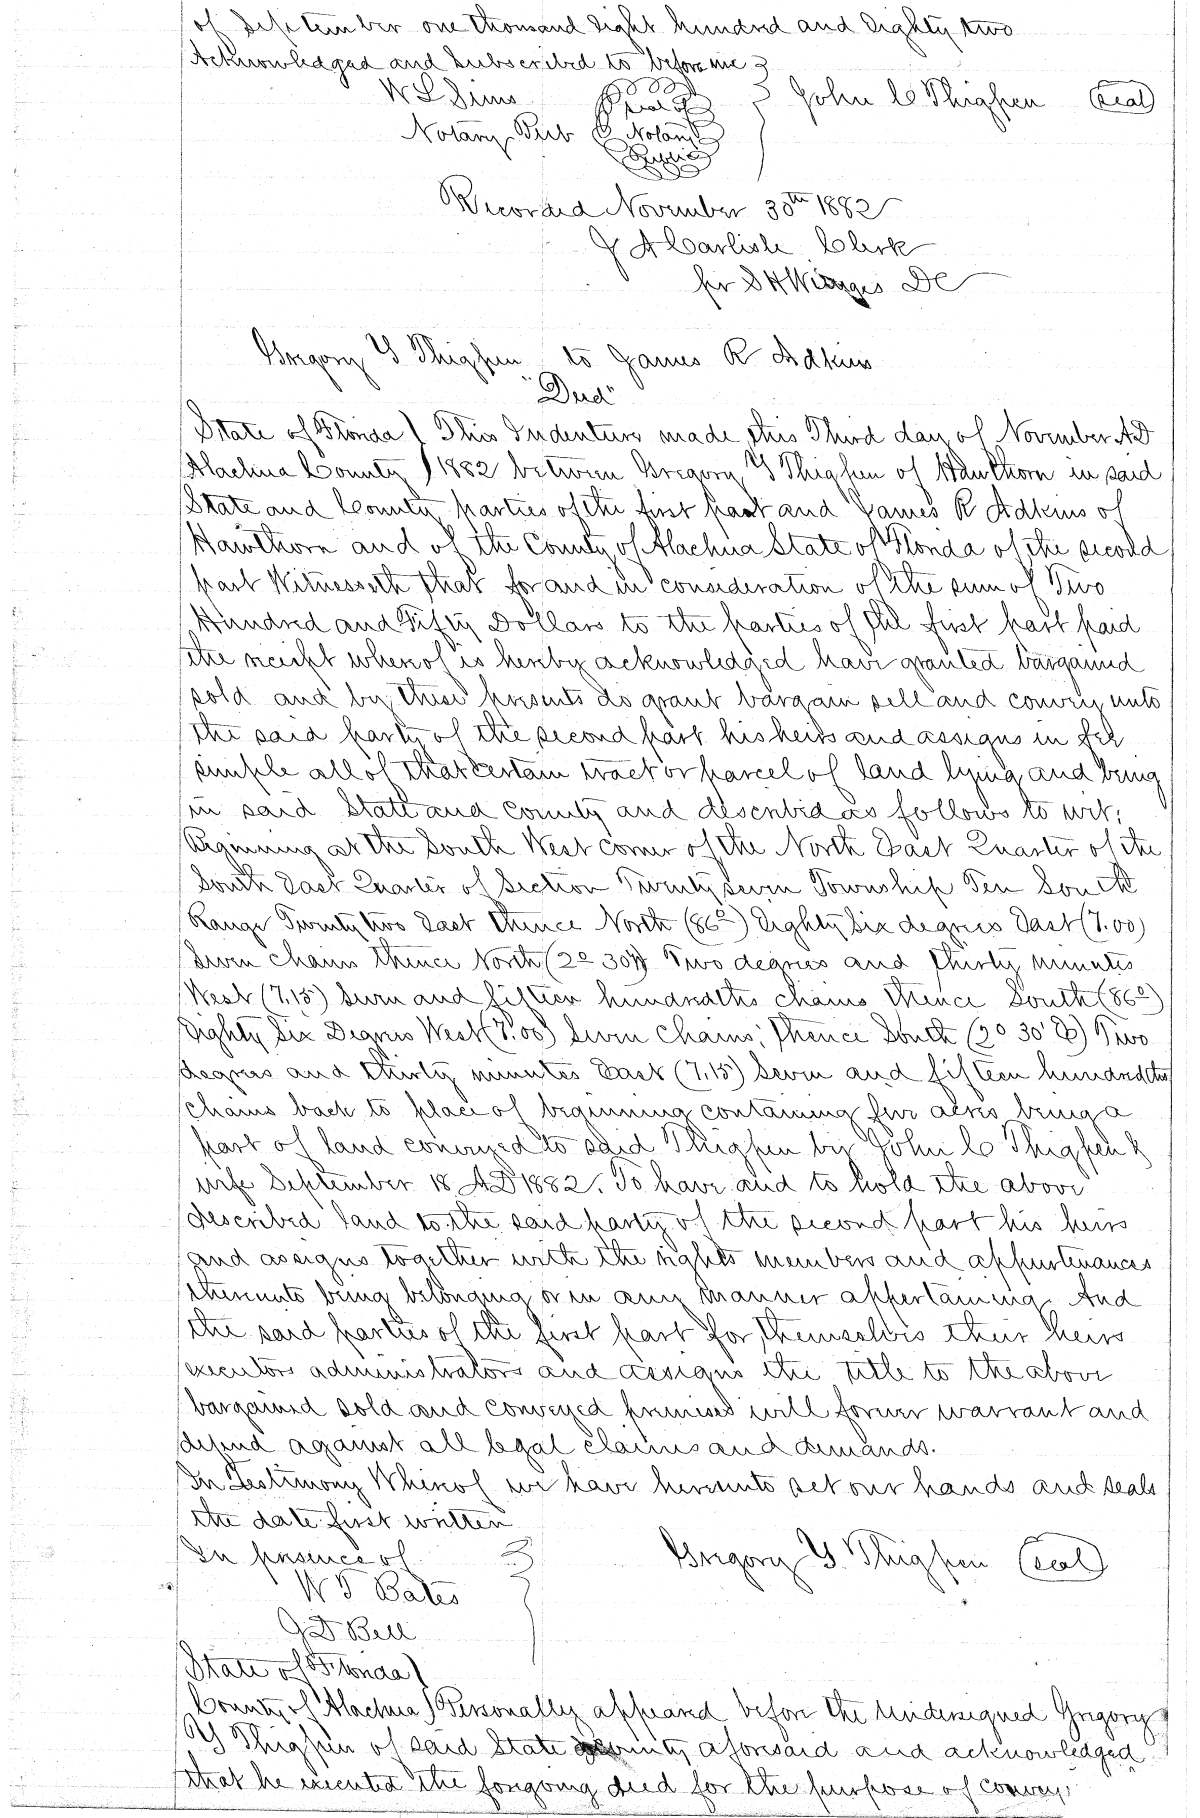 of September one thousand Eight hundred and Eighty two
Acknowledged and Subscribed to before me
W L Sims
Seal of
John C Thigpen (Seal)
Notary Pub
Notary
Public
Recorded November 30th 1882
J A Carlisle Clerk
per S H Wienges DC
Gregory Y Thigpen to James R Adkins
"Deed"
State of Florida ) This Indenture made this Third day of November AD
Alachua County ) 1882 between Gregory Y Thigpen of Hawthorn in said
State and County parties of the first part and James R Adkins of
Hawthorn and of the County of Alachua State of Florida of the second
part Witnesseth that for and in consideration of the sum of Two
Hundred and Fifty Dollars to the parties of the first part paid
the receipt whereof is hereby acknowledged have granted bargained
sold and by these presents do grant bargain sell and convey unto
the said party of the second part his heirs and assigns in fee
simple all of that certain tract or parcel of land lying and being
in said State and County and described as follows to wit;
Beginning at the South West corner of the North East Quarter of the
South East Quarter of Section Twenty seven Township Ten South
Range Twenty two East thence North (86°) Eighty Six degrees East (7.00)
Seven chains thence North (2° 30') Two degrees and thirty minutes
West (7.15) seven and fifteen hundredths chains thence South (86°)
Eighty Six Degrees West (7.00) Seven Chains; thence South (2° 30' E) Two
degrees and thirty minutes East (7.15) Seven and fifteen hundredths
chains back to place of beginning containing five acres being a
part of land conveyed to said Thigpen by John C Thigpen &
wife September 18 AD 1882. To have and to hold the above
described land to the said party of the second part his heirs
and assigns together with the rights members and appurtenances
thereunto being belonging or in any manner appertaining. And
the said parties of the first part for themselves their heirs
executors administrators and assigns the title to the above
bargained sold and conveyed premises will forever warrant and
defend against all legal claims and demands.
In Testimony Whereof we have hereunto set our hands and seals
the date first written
In presence of
Gregory Y. Thigpen (seal)
W T Bates
G D Bell
State of Florida )
County of Alachua ) Personally appeared before the undersigned Gregory
Y Thigpen of said State County aforesaid and acknowledged
that he executed the forgoing deed for the purpose of convey